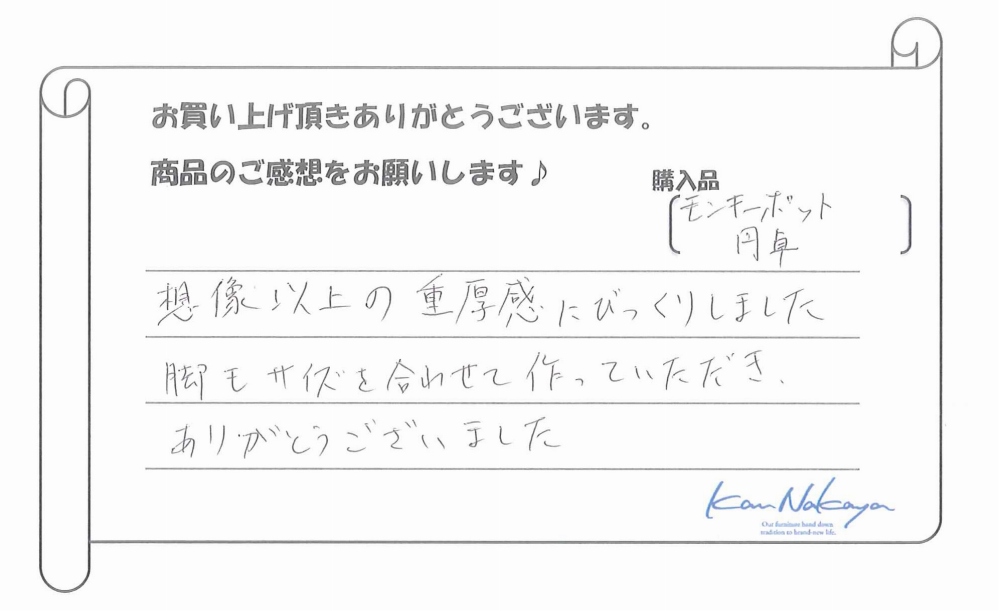 お買い上げ頂きありがとうございます。
商品のご感想をお願いします♪
購入品
モンキーポット
円卓
想像以上の重厚感にびっくりしました
脚もサイズを合わせて作っていただき、
ありがとうございました
Kan Nakaya
Our furniture hand down
tradition to brand-new life.